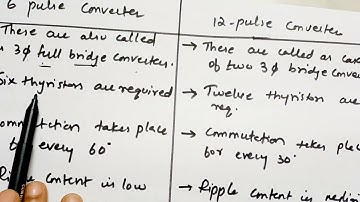 6 pulse Converter
12-pulse Converter
These are also called
3φ full bridge Converters.
→ These are called as
of two 3φ bridge
Six thyristors are required
→ Twelve thyristors are
req.
takes place
for every 60°
→ Commutation takes
for every 30°
content is low
→ Ripple content is